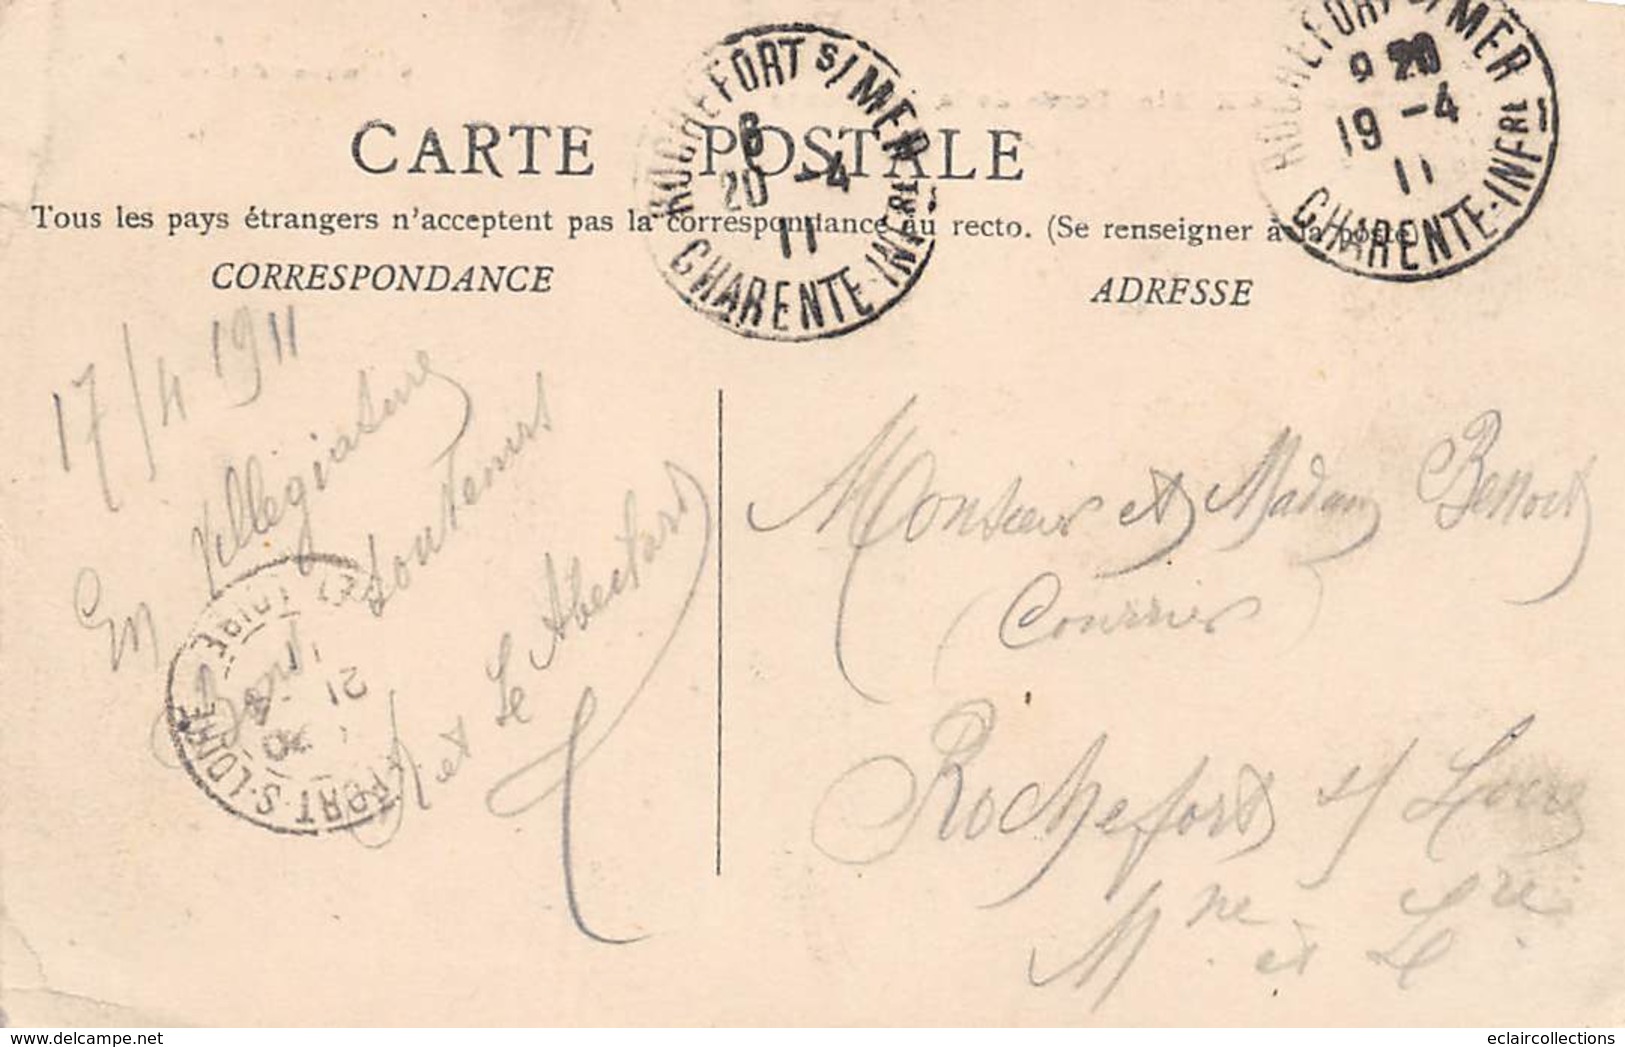 CARTE POSTALE
Tous les pays étrangers n'acceptent pas la correspondance au recto. (Se renseigner à la poste)
CORRESPONDANCE
ADRESSE
ROCHEFORT S/MER
8
20 -4
11
CHARENTE-INFRE
ROCHEFORT S/MER
9 20
19 -4
11
CHARENTE-INFRE
17/4 1911
En villegiature
Bons Souvenirs
et Le
Monsieur et Madame Benoit
(Courrier)
Rochefort s/ Loire
Mne et Lre
21
-4
S-LOIRE
eclaircollections
delcampe.net